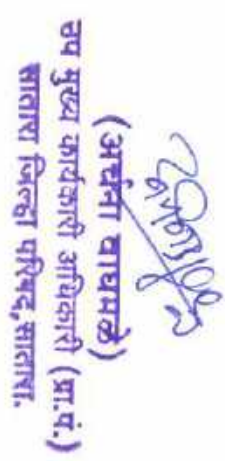 (अर्चना वाघमळे)
उप मुख्य कार्यकारी अधिकारी (प्रा.पं.)
सातारा जिल्हा परिषद,सातारा.